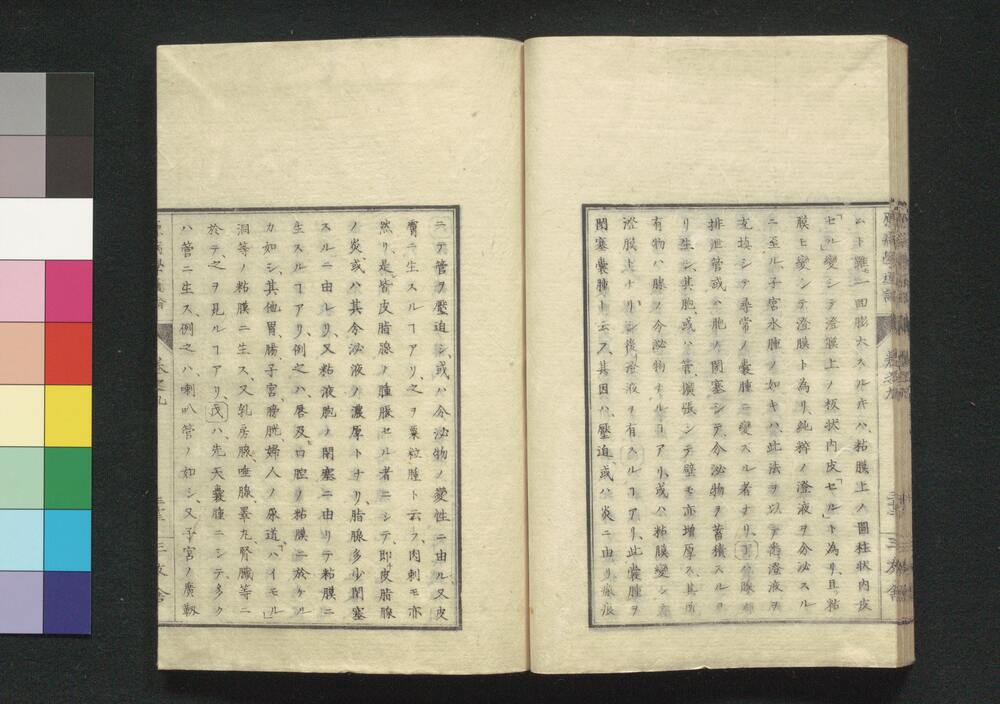 ムト雖𪜈一回膨大スルキハ粘膜上ノ圓柱状内皮
「セル」變シテ澄膜上ノ板状内皮「セル」ト為リ且粘
膜モ變シテ澄膜ト為リ純粹ノ澄液ヲ分泌スル
ニ至ル子宮水腫ノ如キハ此法ヲ以テ澄液ヲ
充填シテ尋常ノ嚢腫ニ變スル者ナリ
排泄管或ハ胞ノ閉塞シテ分泌物ヲ蓄積スルヨ
リ生シ其胞或ハ管擴張シテ壁モ亦増厚ス其
有物ハ腺ノ分泌物ナルヿアリ或ハ粘膜變シ
澄膜トナリシ後澄液ヲ有スルヿアリ此嚢腫ヲ
閉塞嚢腫ト云フ其因ハ壓迫或ハ炎ニ由リ瘢痕
ニテ管ヲ壓迫シ或ハ分泌物ノ變性ニ由ル又皮
膚ニ生スルヿアリ之ヲ粟粒腫ト云フ肉刺モ亦
然リ是皆皮脂腺ノ腫脹セル者ニシテ即皮脂腺
ノ炎或ハ其分泌液ノ濃厚トナリ脂腺多少閉塞
スルニ由レリ又粘液胞ノ閉塞ニ由リテ粘膜ニ
生スルヿアリ例之ハ唇及口腔ノ粘膜ニ於ケル
カ如シ其他胃腸子宮膀胱婦人ノ尿道「ハイモル」
洞等ノ粘膜ニ生ス又乳房腺唾腺睾丸腎臓等ニ
於テ之ヲ見ルヿアリ戊ハ先天嚢腫ニシテ多ク
ハ管ニ生ス例之ハ喇叭管ノ如シ又子宮ノ廣靱